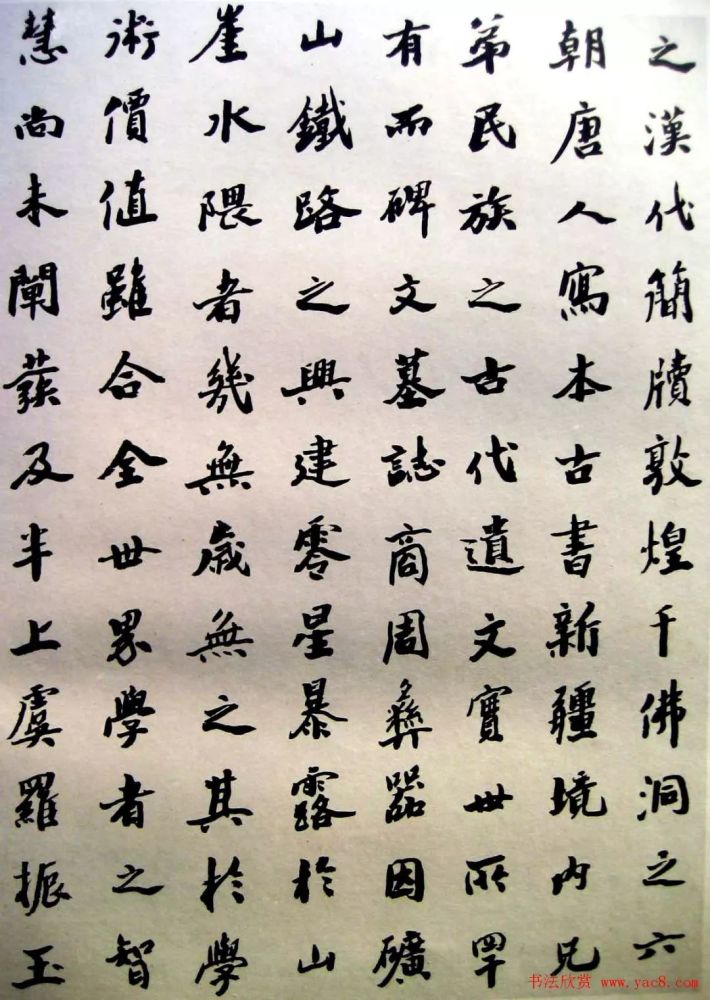 之漢代簡牘敦煌千佛洞之六
朝唐人寫本古書新疆境內兄
弟民族之古代遺文實世所罕
有而碑文墓誌商周彝器因礦
山鐵路之興建零星暴露於山
崖水隈者幾無歲無之其於學
術價值雖合全世界學者之智
慧尚未闡發及半上虞羅振玉
书法欣赏 www.yac8.com